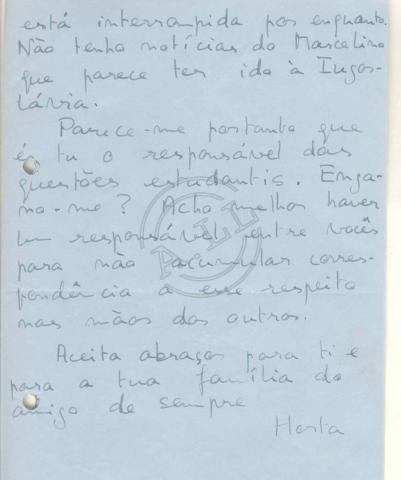 está interrompida por enquanto.
Não tenho notícias do Marcelino
que parece ter ido à Jugos-
lávia.
Parece-me portanto que
és tu o responsável das
questões estudantis. Enga-
no-me? Acho melhor haver
um responsável entre vocês
para não acumular corres-
pondência a esse respeito
nas mãos dos outros.
Aceita abraços para ti e
para a tua família do
amigo de sempre
Horta